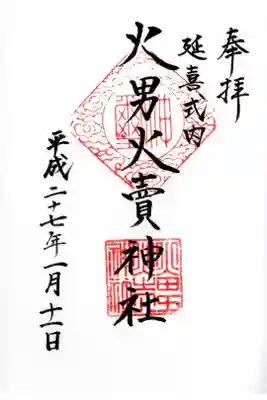 奉拝
延喜式内
火男火賣神社
平成二十七年一月十一日